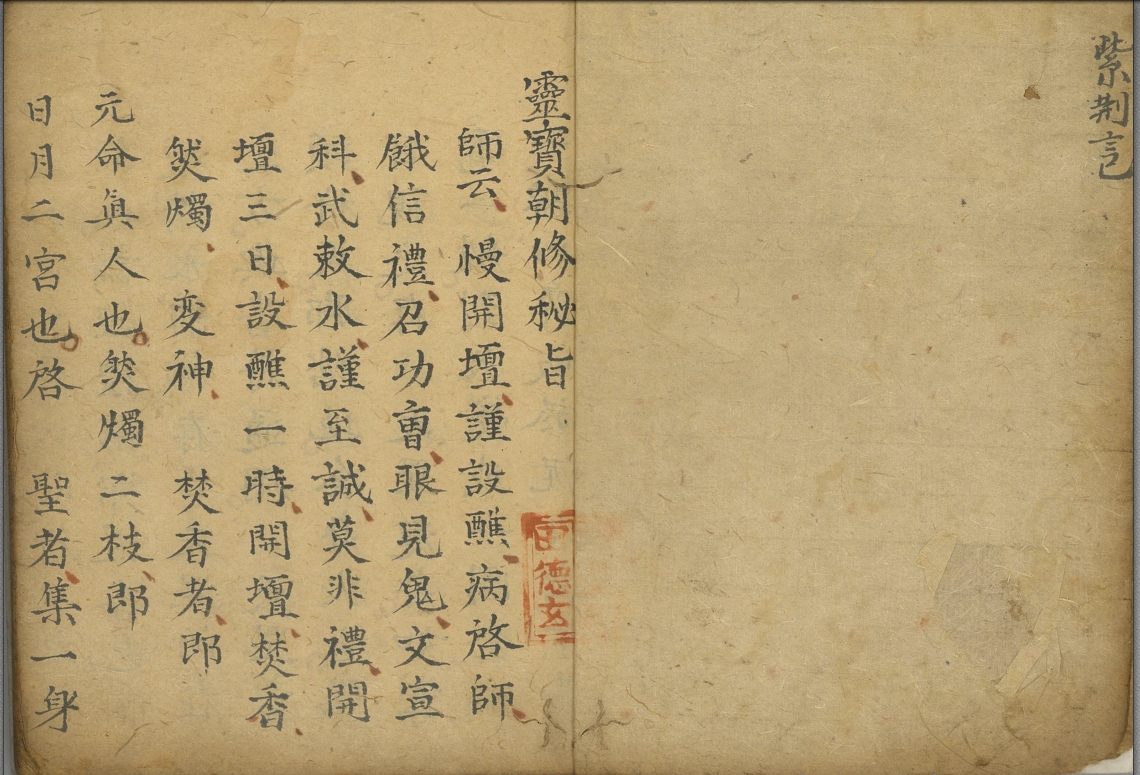 紫荆
靈寶朝修秘旨
師云、慢開壇、謹設醮、病啓師、
餓信禮、召功曺、眼見鬼、文宣
科、武敕水、謹至誠、莫非禮、開
壇三日、設醮一時、開壇焚香、
燃燭、変神、焚香者、郎
元命眞人也。燃燭二枝、郎
日月二宮也。啓聖者、集一身
德玄